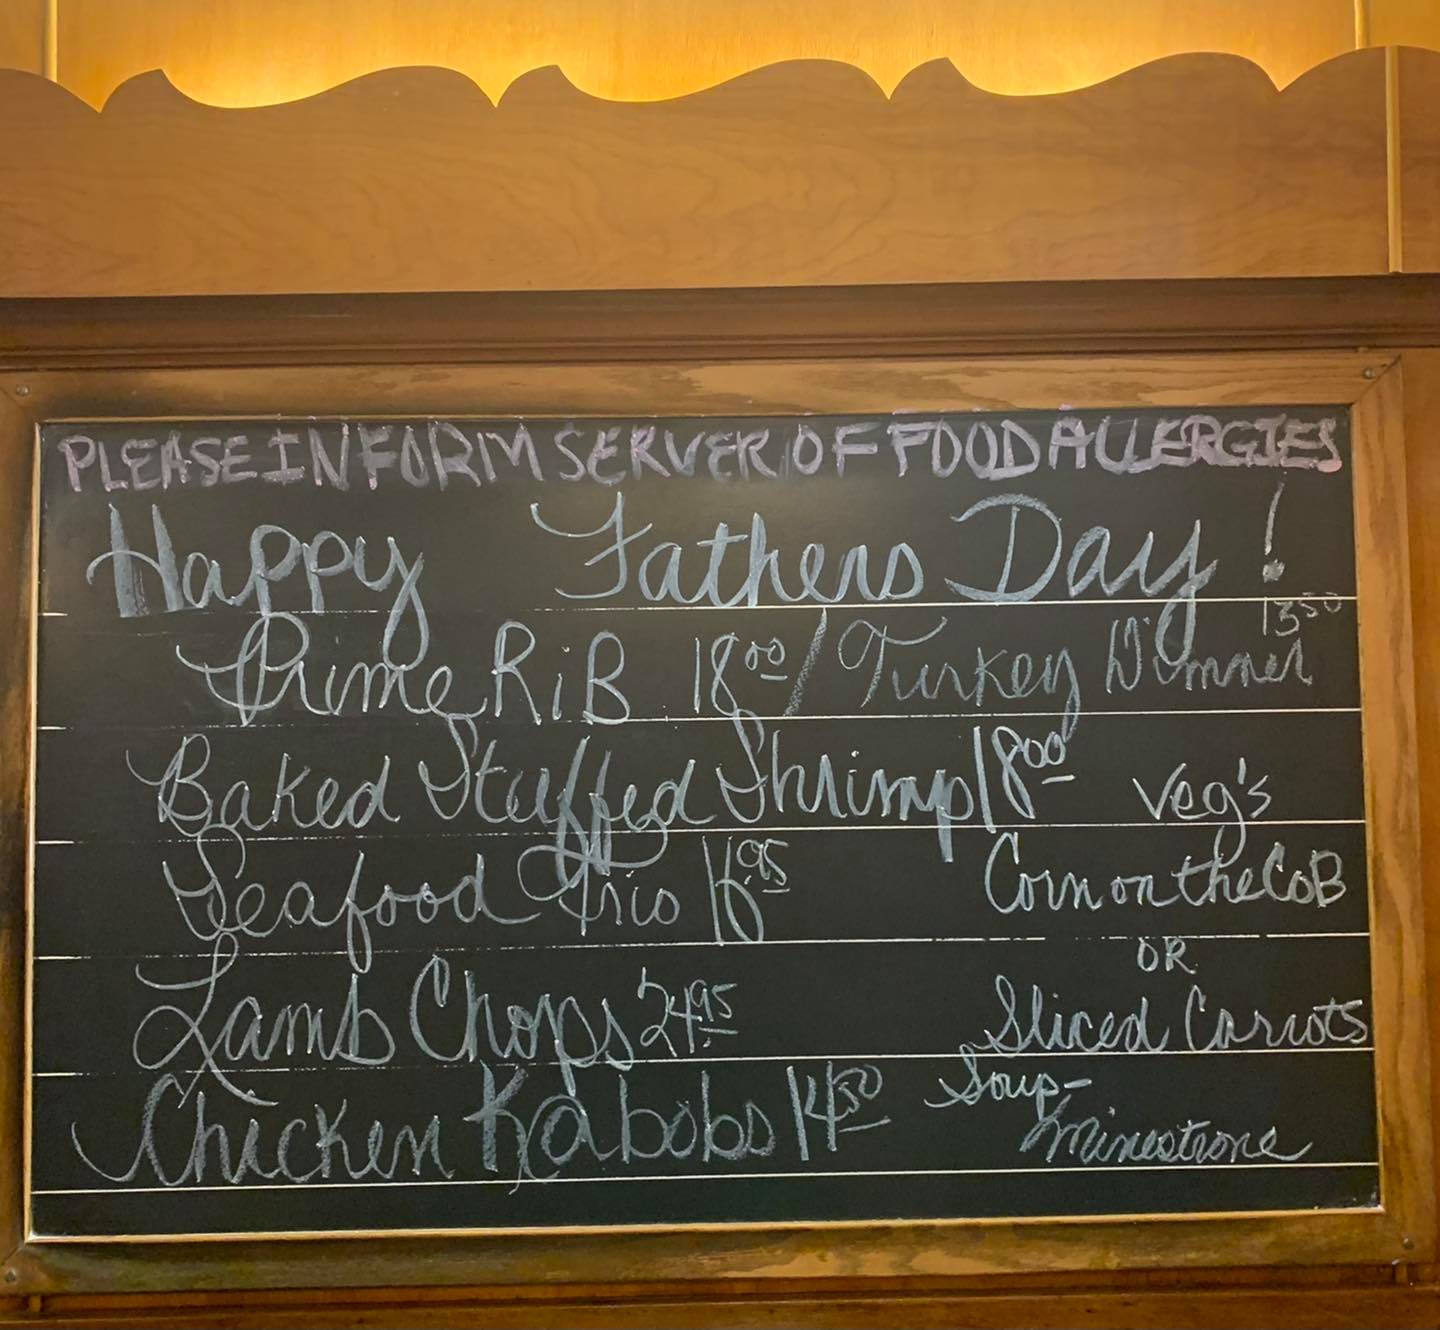 PLEASE INFORM SERVER OF FOOD ALLERGIES
Happy Fathers Day!
Prime RiB 18.00 / Turkey Dinner 13.50
Baked Stuffed Shrimp 18.00 Veg's
Seafood Trio 16.95 Corn on the CoB
OR
Lamb Chops 24.95 Sliced Carrots
Chicken Kabobs 14.50 Soup-
Minestrone